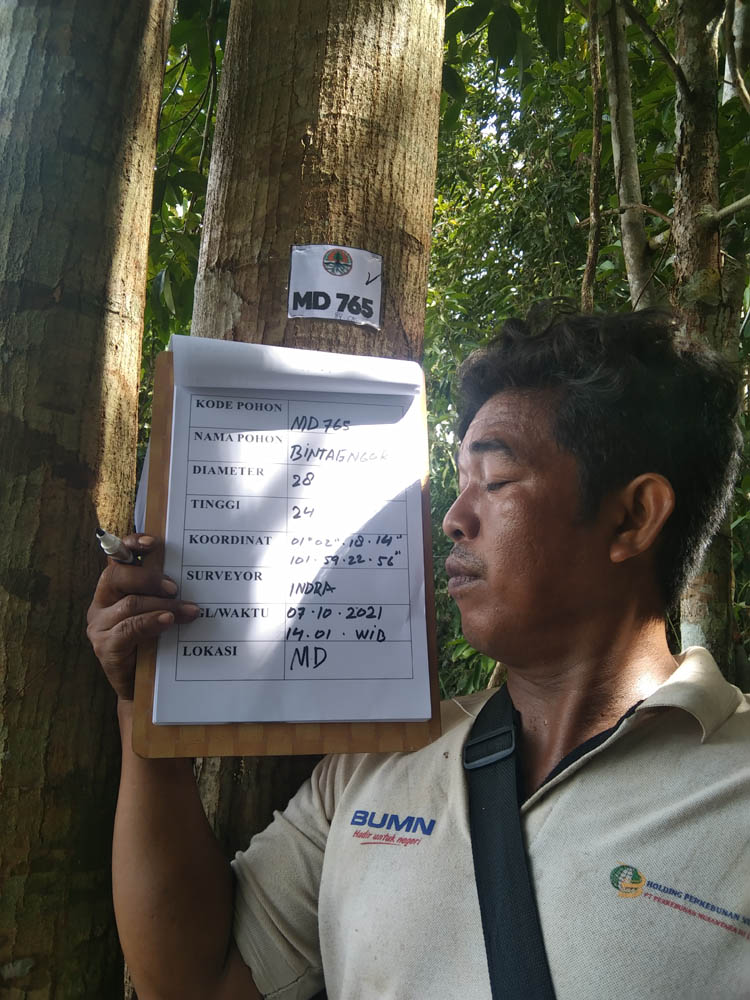 MD 765
KODE POHON MD765
NAMA POHON BINTAENGOR
DIAMETER 28
TINGGI 24
KOORDINAT 01°02"·18·14"
101·59·22·56"
SURVEYOR INDRA
GL/WAKTU 07·10·2021
14.01 · WIB
LOKASI MD
BUMN
Hadir untuk negeri
HOLDING PERKEBUNAN
PT PERKEBUNAN NUSANTARA III